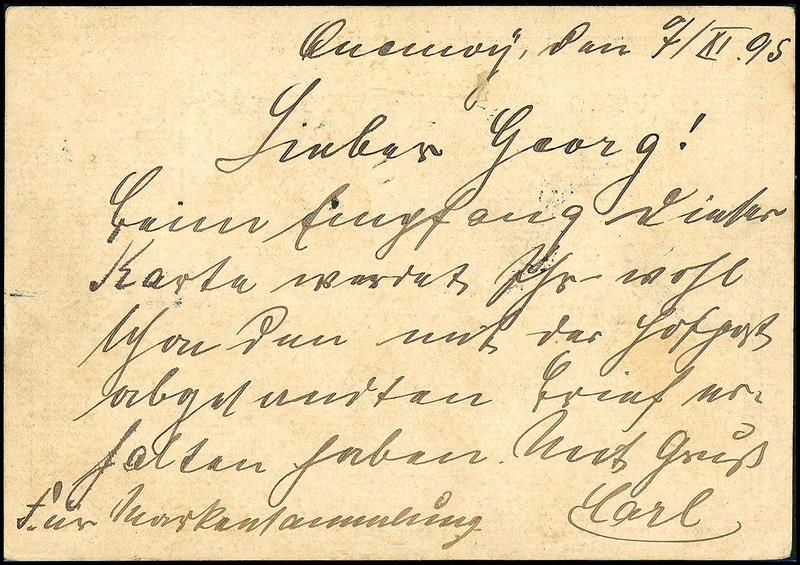 Quemoy, den 9/XI.95
Lieber Georg!
Beim Empfang dieser
Karte werdet Ihr wohl
schon den mit der Hofpost
abgesandten Brief er-
halten haben. Mit Gruß
Für Markensammlung Carl